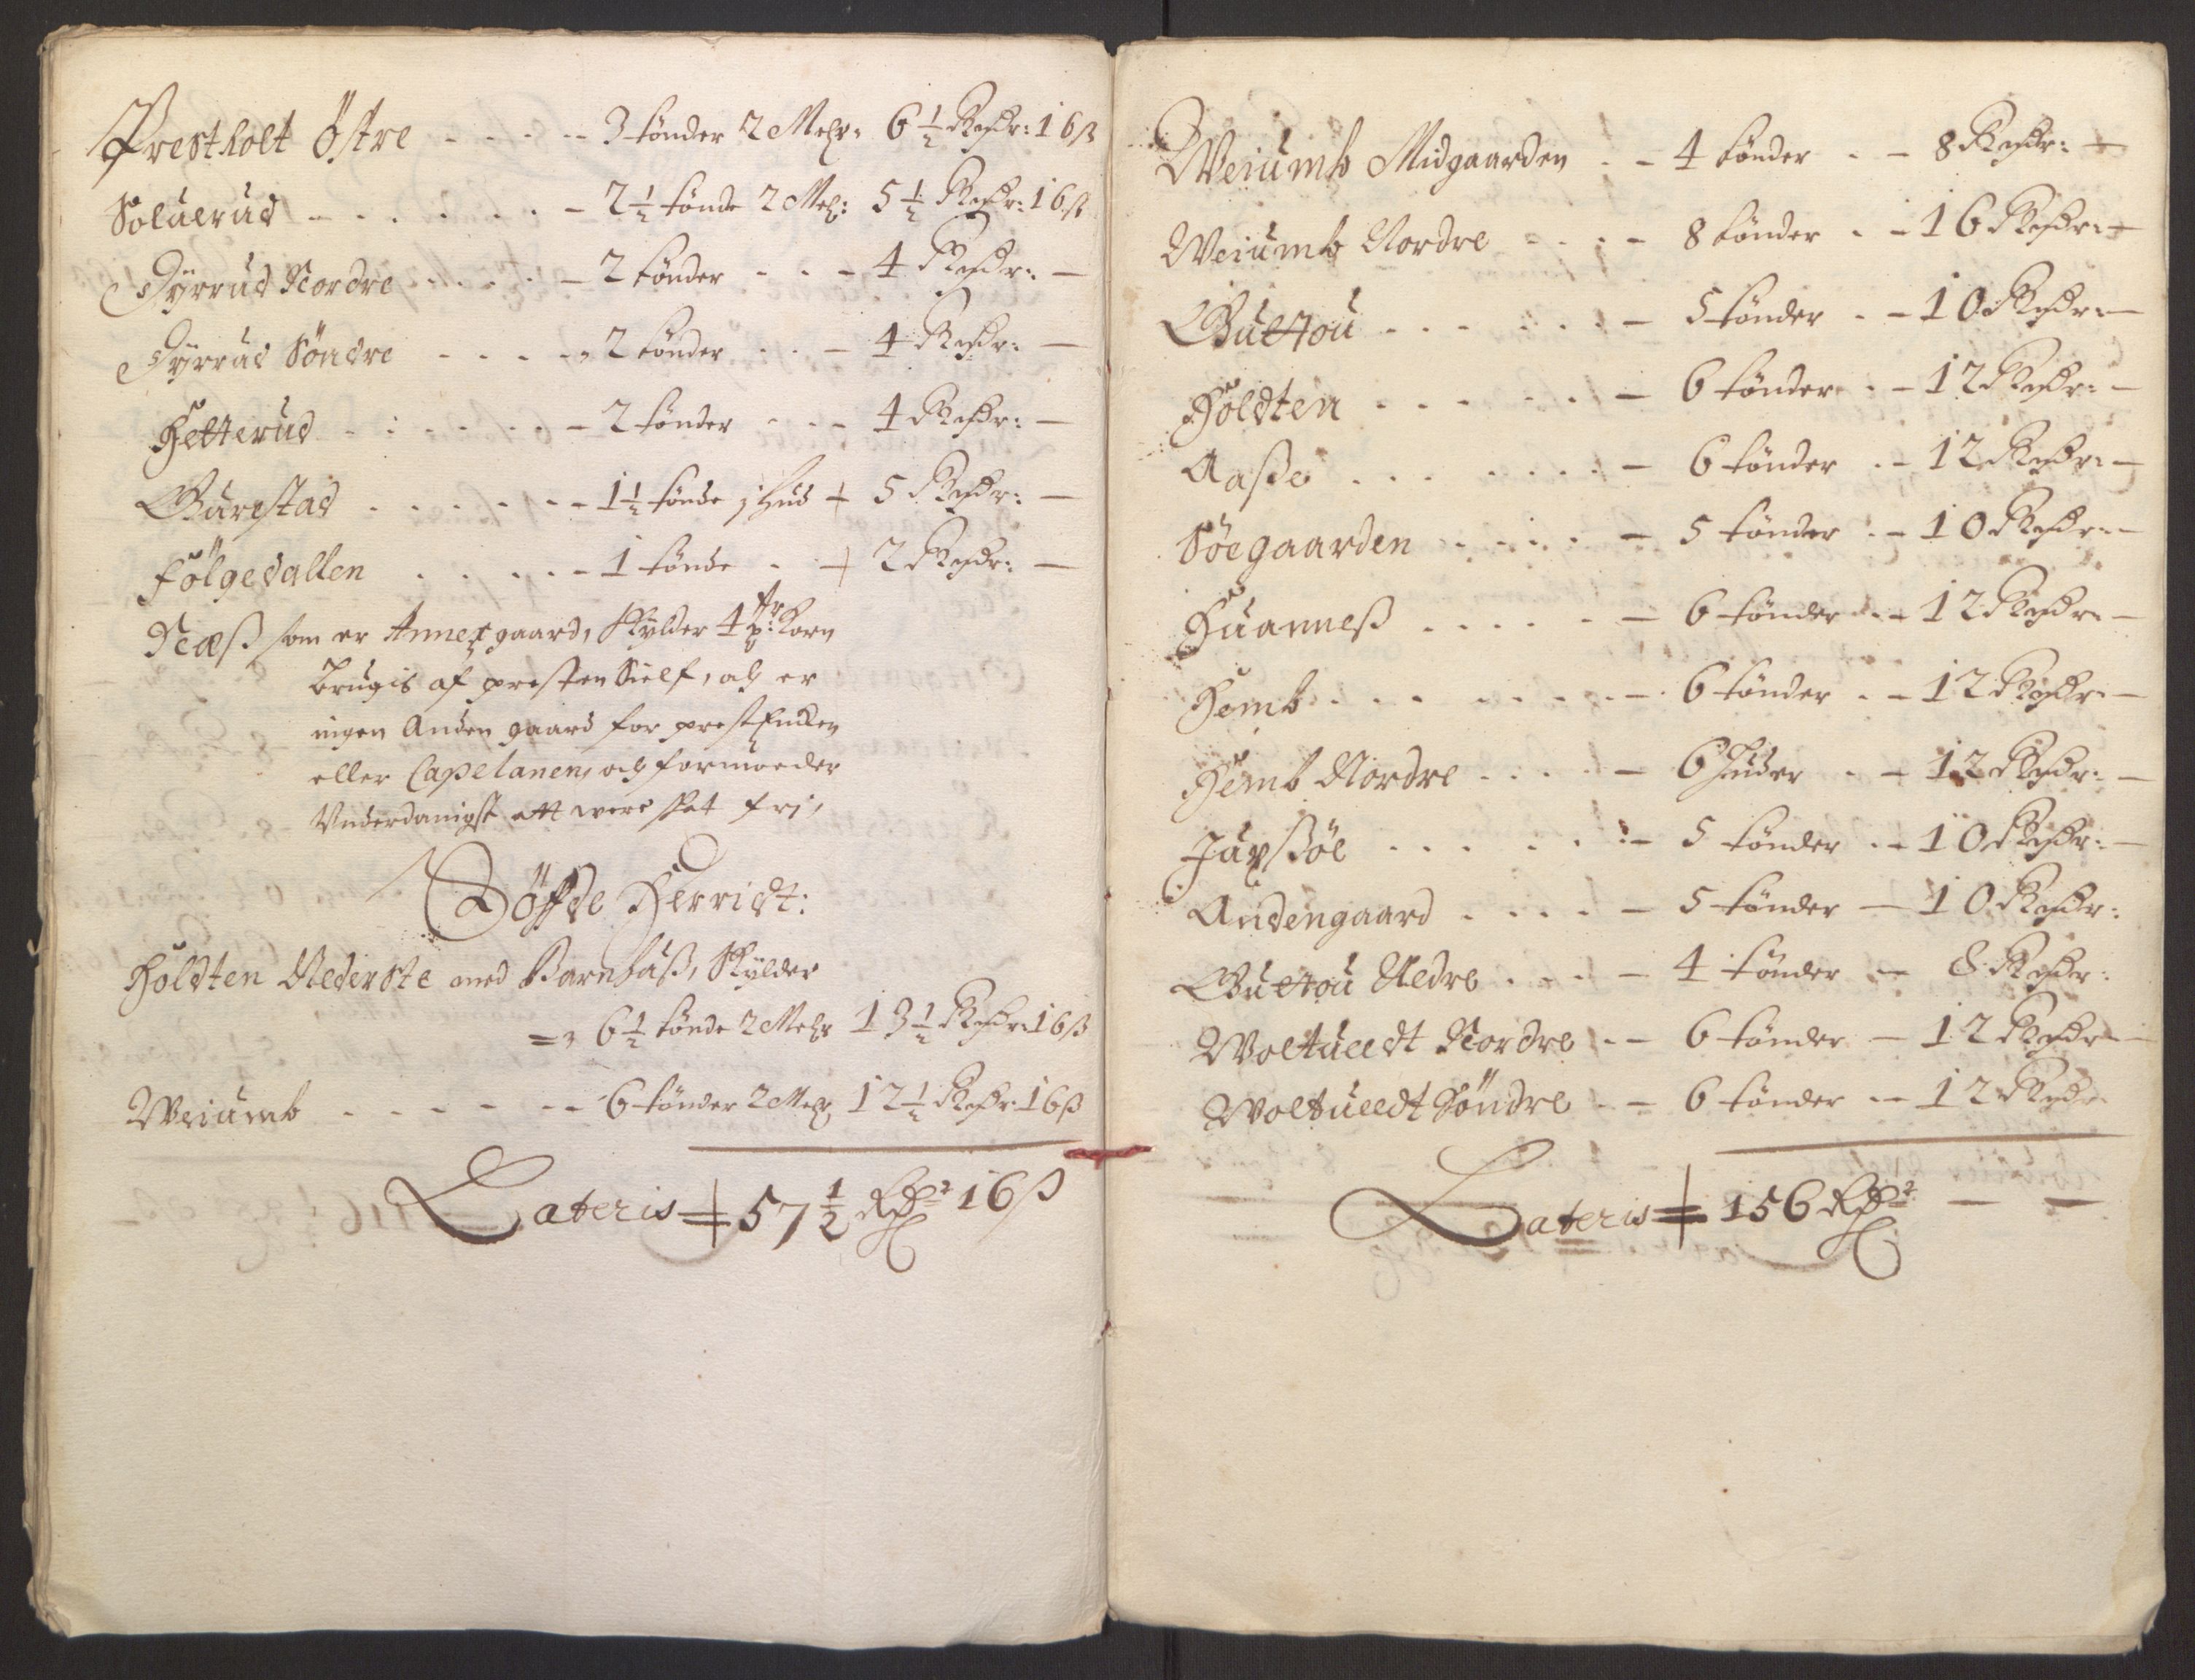 Prestholt Östre - - - - - 3 tønder 2 Mehr: 6 1/2 Rixdr: 16 ß
Soluerud - - - - - - 2 1/2 tønde 2 Mel: 5 1/2 Rixdr: 16 ß
Tÿrrud Nordre - - - - - 2 tønder - - - 4 Rixdr: -
Tÿrrud Söndre - - - - - 2 tønder - - - 4 Rixdr: -
Hetterud - - - - - - 2 tønder - - - 4 Rixdr: -
Gurestad - - - - - - - 1 1/2 tønde j hud + 5 Rixdr: -
Fölgedallen - - - - - 1 tønde - - + 2 Rixdr: -
Næß som er Annex gaard, Skylder 4 Korn
brugis af presten Sielf, och er
ingen Anden gaard for prest Encken
eller Capelanen, och formoeder
Underdanigst att were skat frj,
Böffde Herridt:
Holdten Nederste med Barnbuß, Skylder
= 6 1/2 tønde 2 Mehr 13 1/2 Rixdr: 16 ß
Weiumb - - - - - - 6 tønder 2 Mel: 12 1/2 Rixdr: 16 ß
Lateris = 57 1/2 Rdr 16 ß
Weiumb Midgaarden - - 4 tønder - - 8 Rixdr: -
Weiumb Nordre - - - - 8 tønder - - 16 Rixdr: -
Gultou - - - - - - - 5 tønder - - 10 Rixdr: -
Holdten - - - - - - - 6 tønder - - 12 Rixdr: -
Aaße - - - - - - - 6 tønder - - 12 Rixdr: -
Söegaarden - - - - - 5 tønder - - 10 Rixdr: -
Huanneß - - - - - - 6 tønder - - 12 Rixdr: -
Hemb - - - - - - - - 6 tønder - - 12 Rixdr: -
Hemb Nordre - - - - - 6 huder - - 12 Rixdr: -
Juxßøe - - - - - - - 5 tønder - - 10 Rixdr: -
Andengaard - - - - - 5 tønder - 10 Rixdr:
Gultou Nedre - - - - 4 tønder - 8 Rixdr:
Woltueedt Nordre - - 6 tønder - 12 Rixdr: -
Woltueedt Söndre - - 6 tønder - - 12 Rixdr
Lateris = 156 Rdr - -